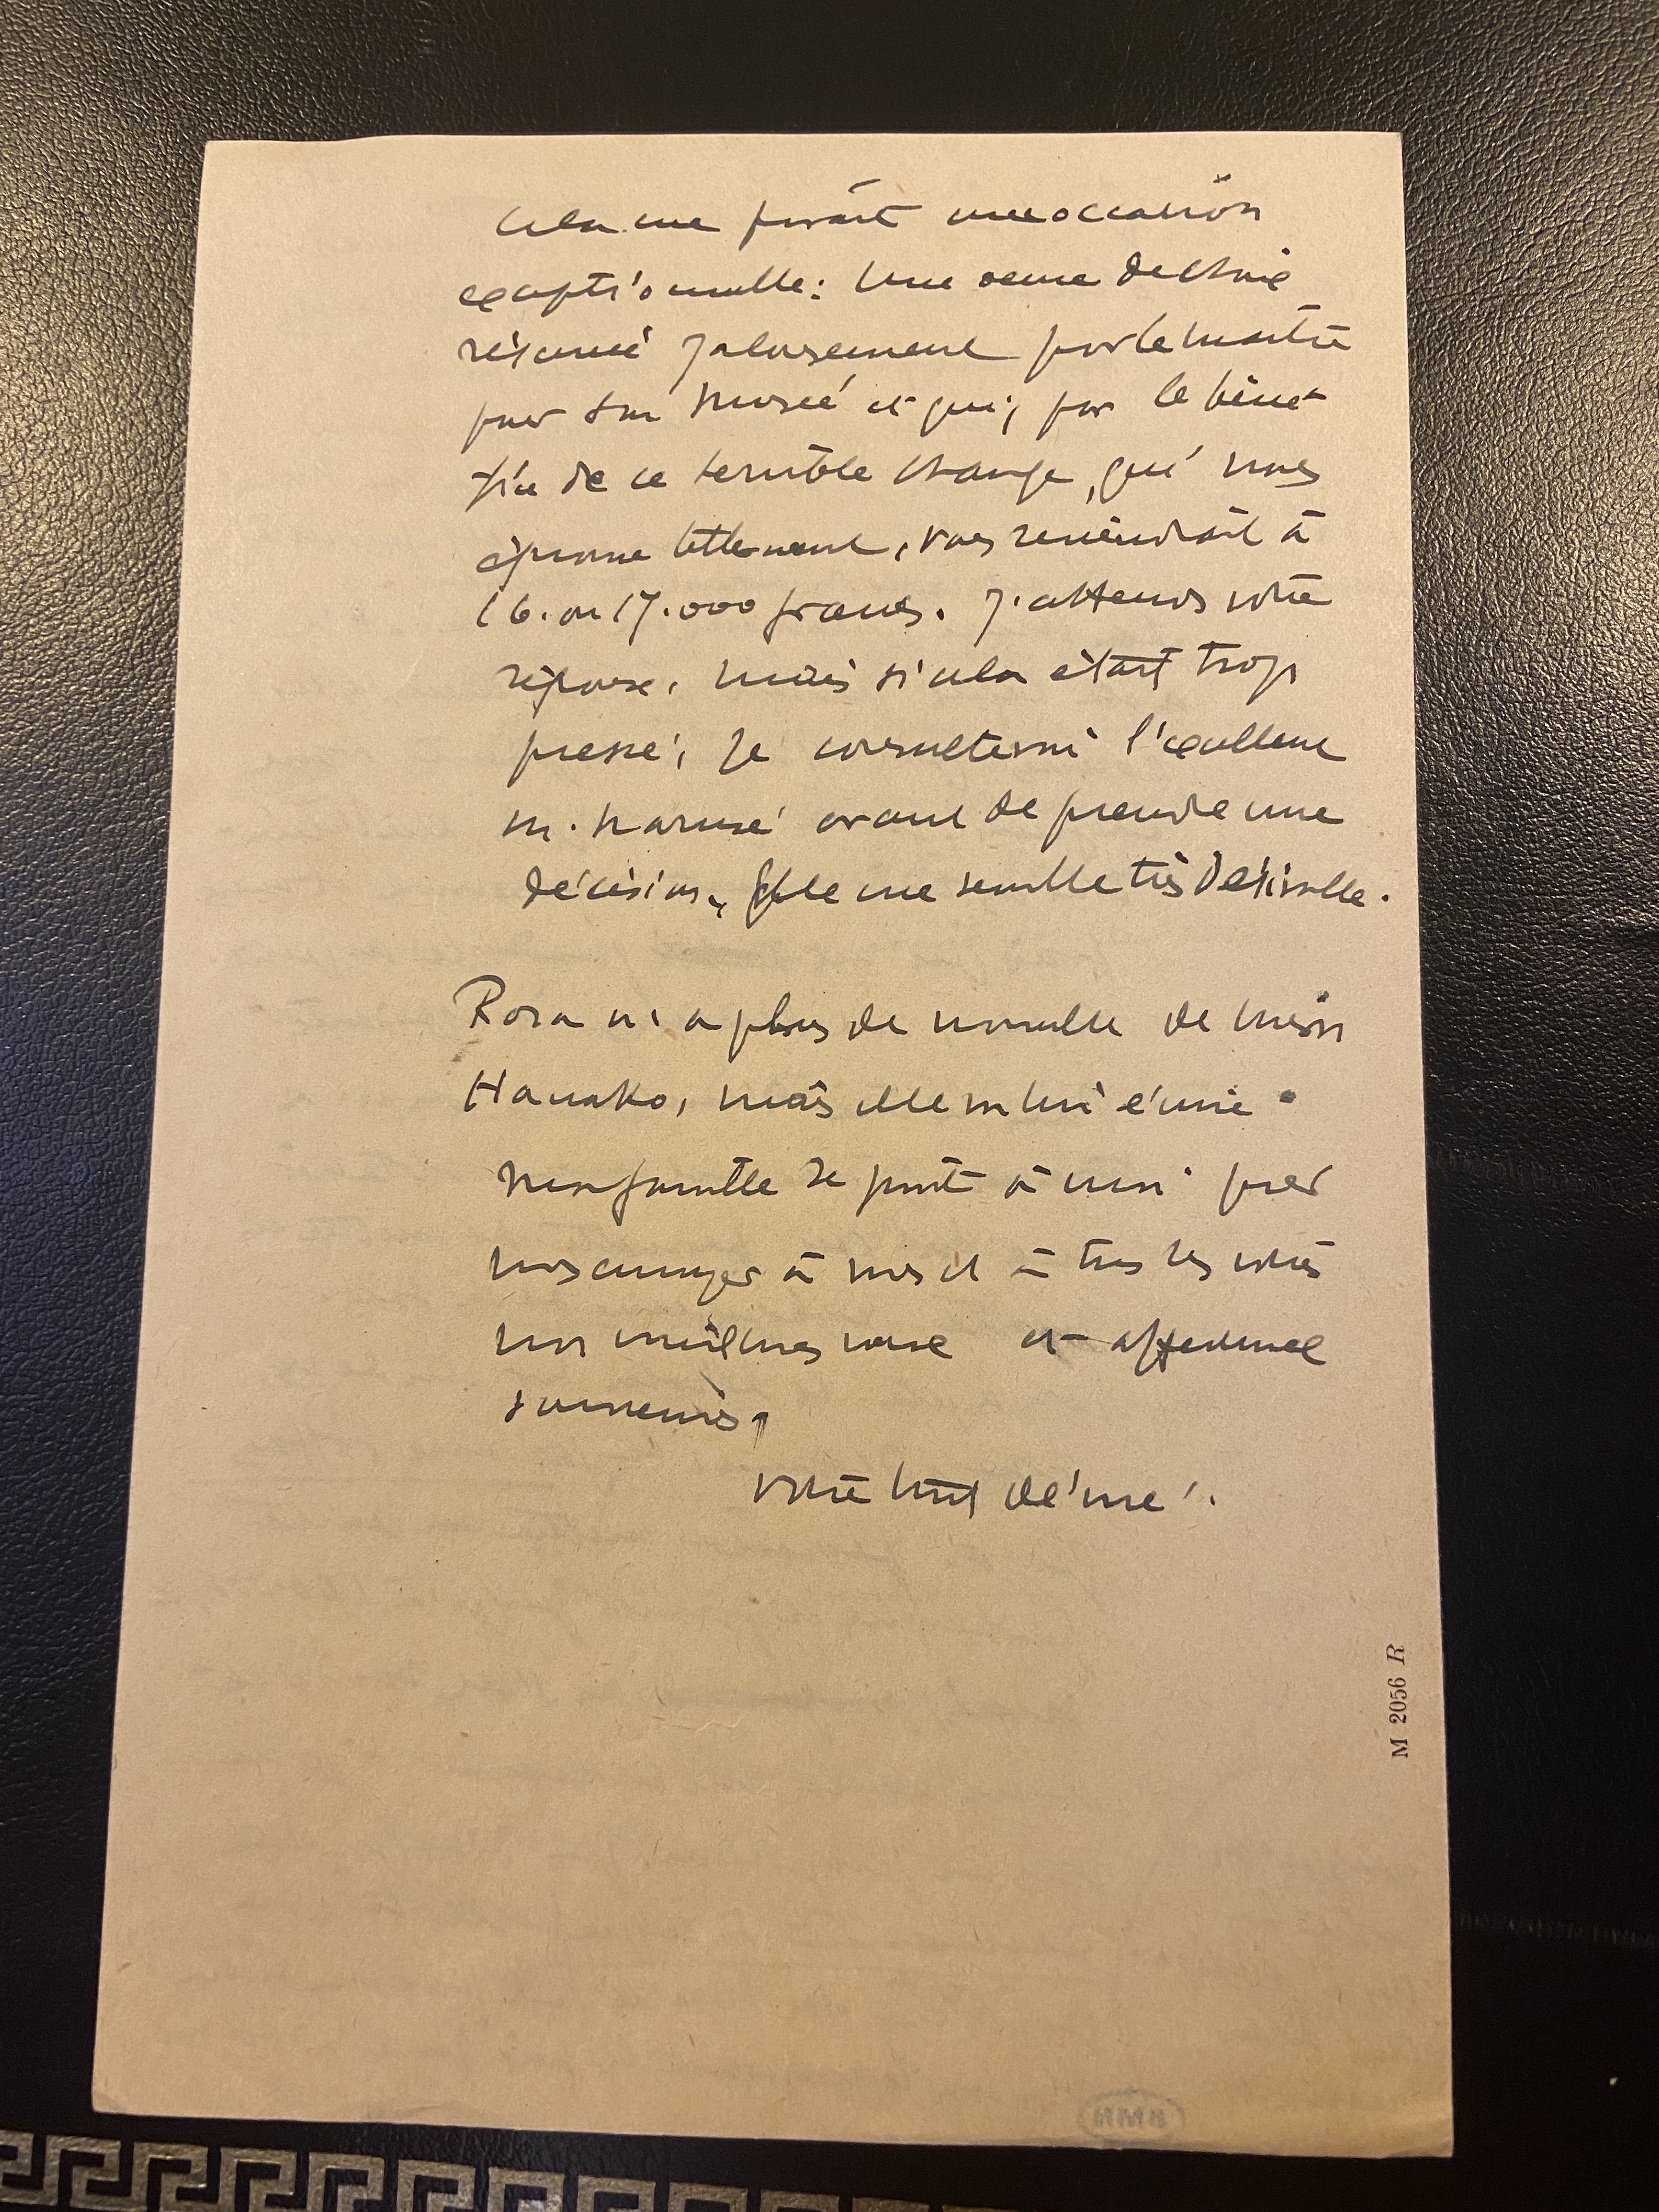 Cela me paraît une occasion
exceptionnelle: Une oeuvre de choix
réservée jalousement par le maître
pour son Musée et qui, par le béné-
fice de ce terrible change, qui nous
éprouve tellement, vous reviendrait à
16. ou 17.000 francs. J'attends votre
réponse, mais si cela était trop
pressé, je consulterai l'excellent
M. Narusé avant de prendre une
décision, Elle me semble très désirable.
Rosa n'a plus de nouvelle de
Hanako, mais elle va lui écrire.
Ma famille se joint à moi pour
vous envoyer à vous et à tous les vôtres
nos meilleurs voeux et affectueux
souvenirs,
Votre tout dévoué.
M 2056 R